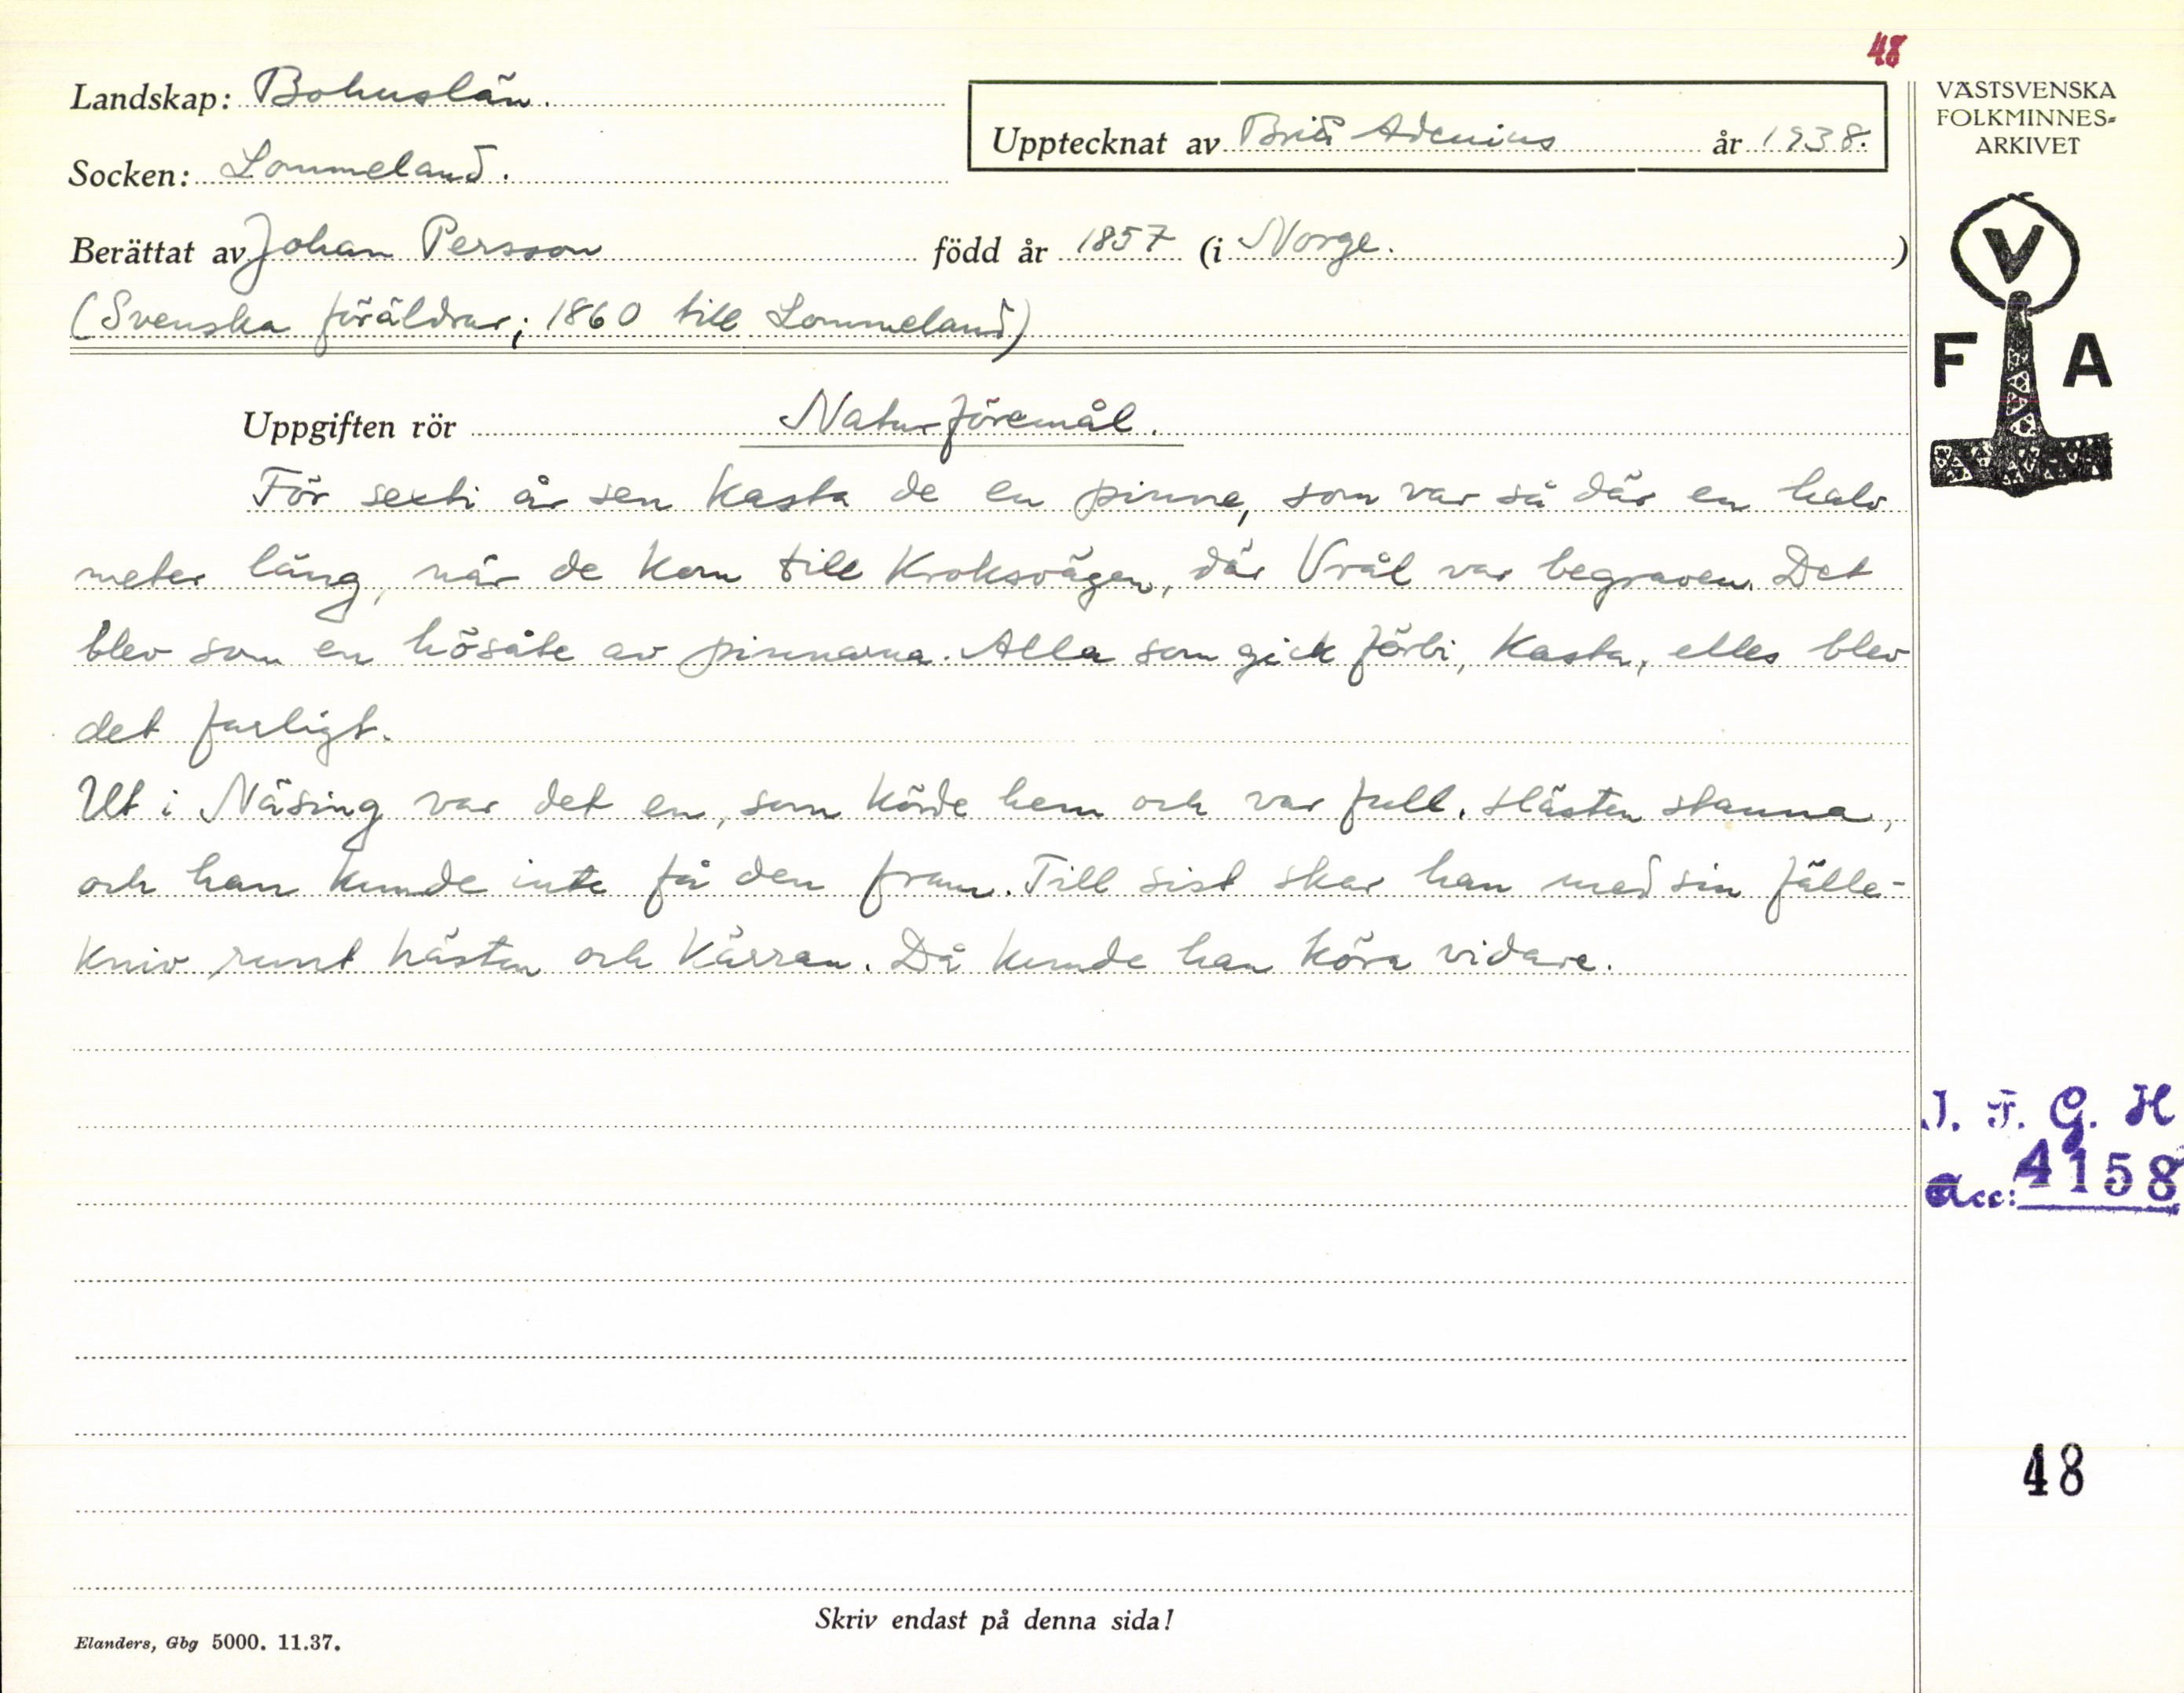 48
Landskap: Bohuslän.
Upptecknat av Brita Adenius år 1938.
Socken: Lommeland.
Berättat av Johan Persson född år 1857 (i Norge.)
(Svenska föräldrar; 1860 till Lommeland)
Uppgiften rör Naturföremål.
För sexti år sen kasta de en pinne, som var så där en halv
meter lång, när de kom till Kroksvägen, där Vrål var begraven. Det
blev som en hösåte av pinnarna. Alla som gick förbi, kasta, elles blev
det farligt.
Ut i Näsing var det en, som körde hem och var full. Hästen stanna,
och han kunde inte få den fram. Till sist skar han med sin fälle-
kniv runt hästen och kärran. Då kunde han köra vidare.
Skriv endast på denna sida!
Elanders, Gbg 5000. 11.37.
VÄSTSVENSKA
FOLKMINNES=
ARKIVET
V
F A
I. F. G. H
Acc: 4158
48